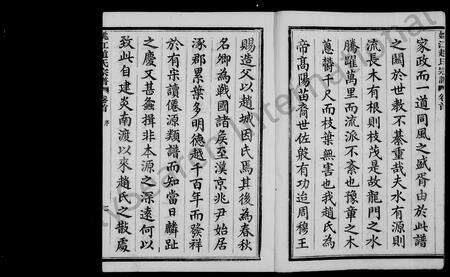 家政而一道同風之盛胥由於此譜
之關於世教不綦重哉夫水有源則
流長木有根則枝茂是故龍門之水
騰躍萬里而流派不紊也豫章之木
蔥鬱千尺而枝葉無害也我趙氏為
帝高陽苗裔世佐殷有功迨周穆王
賜造父以趙城因氏焉其後為春秋
名卿為戰國諸侯至漢京兆尹始居
涿郡累葉多明德越千百年而發祥
於有宋讀僊源類譜而知當日麟趾
之慶又甚無揖非本源之深遠何以
致此自建炎南渡以來趙氏之散處
姚江趙氏宗譜 卷首 序